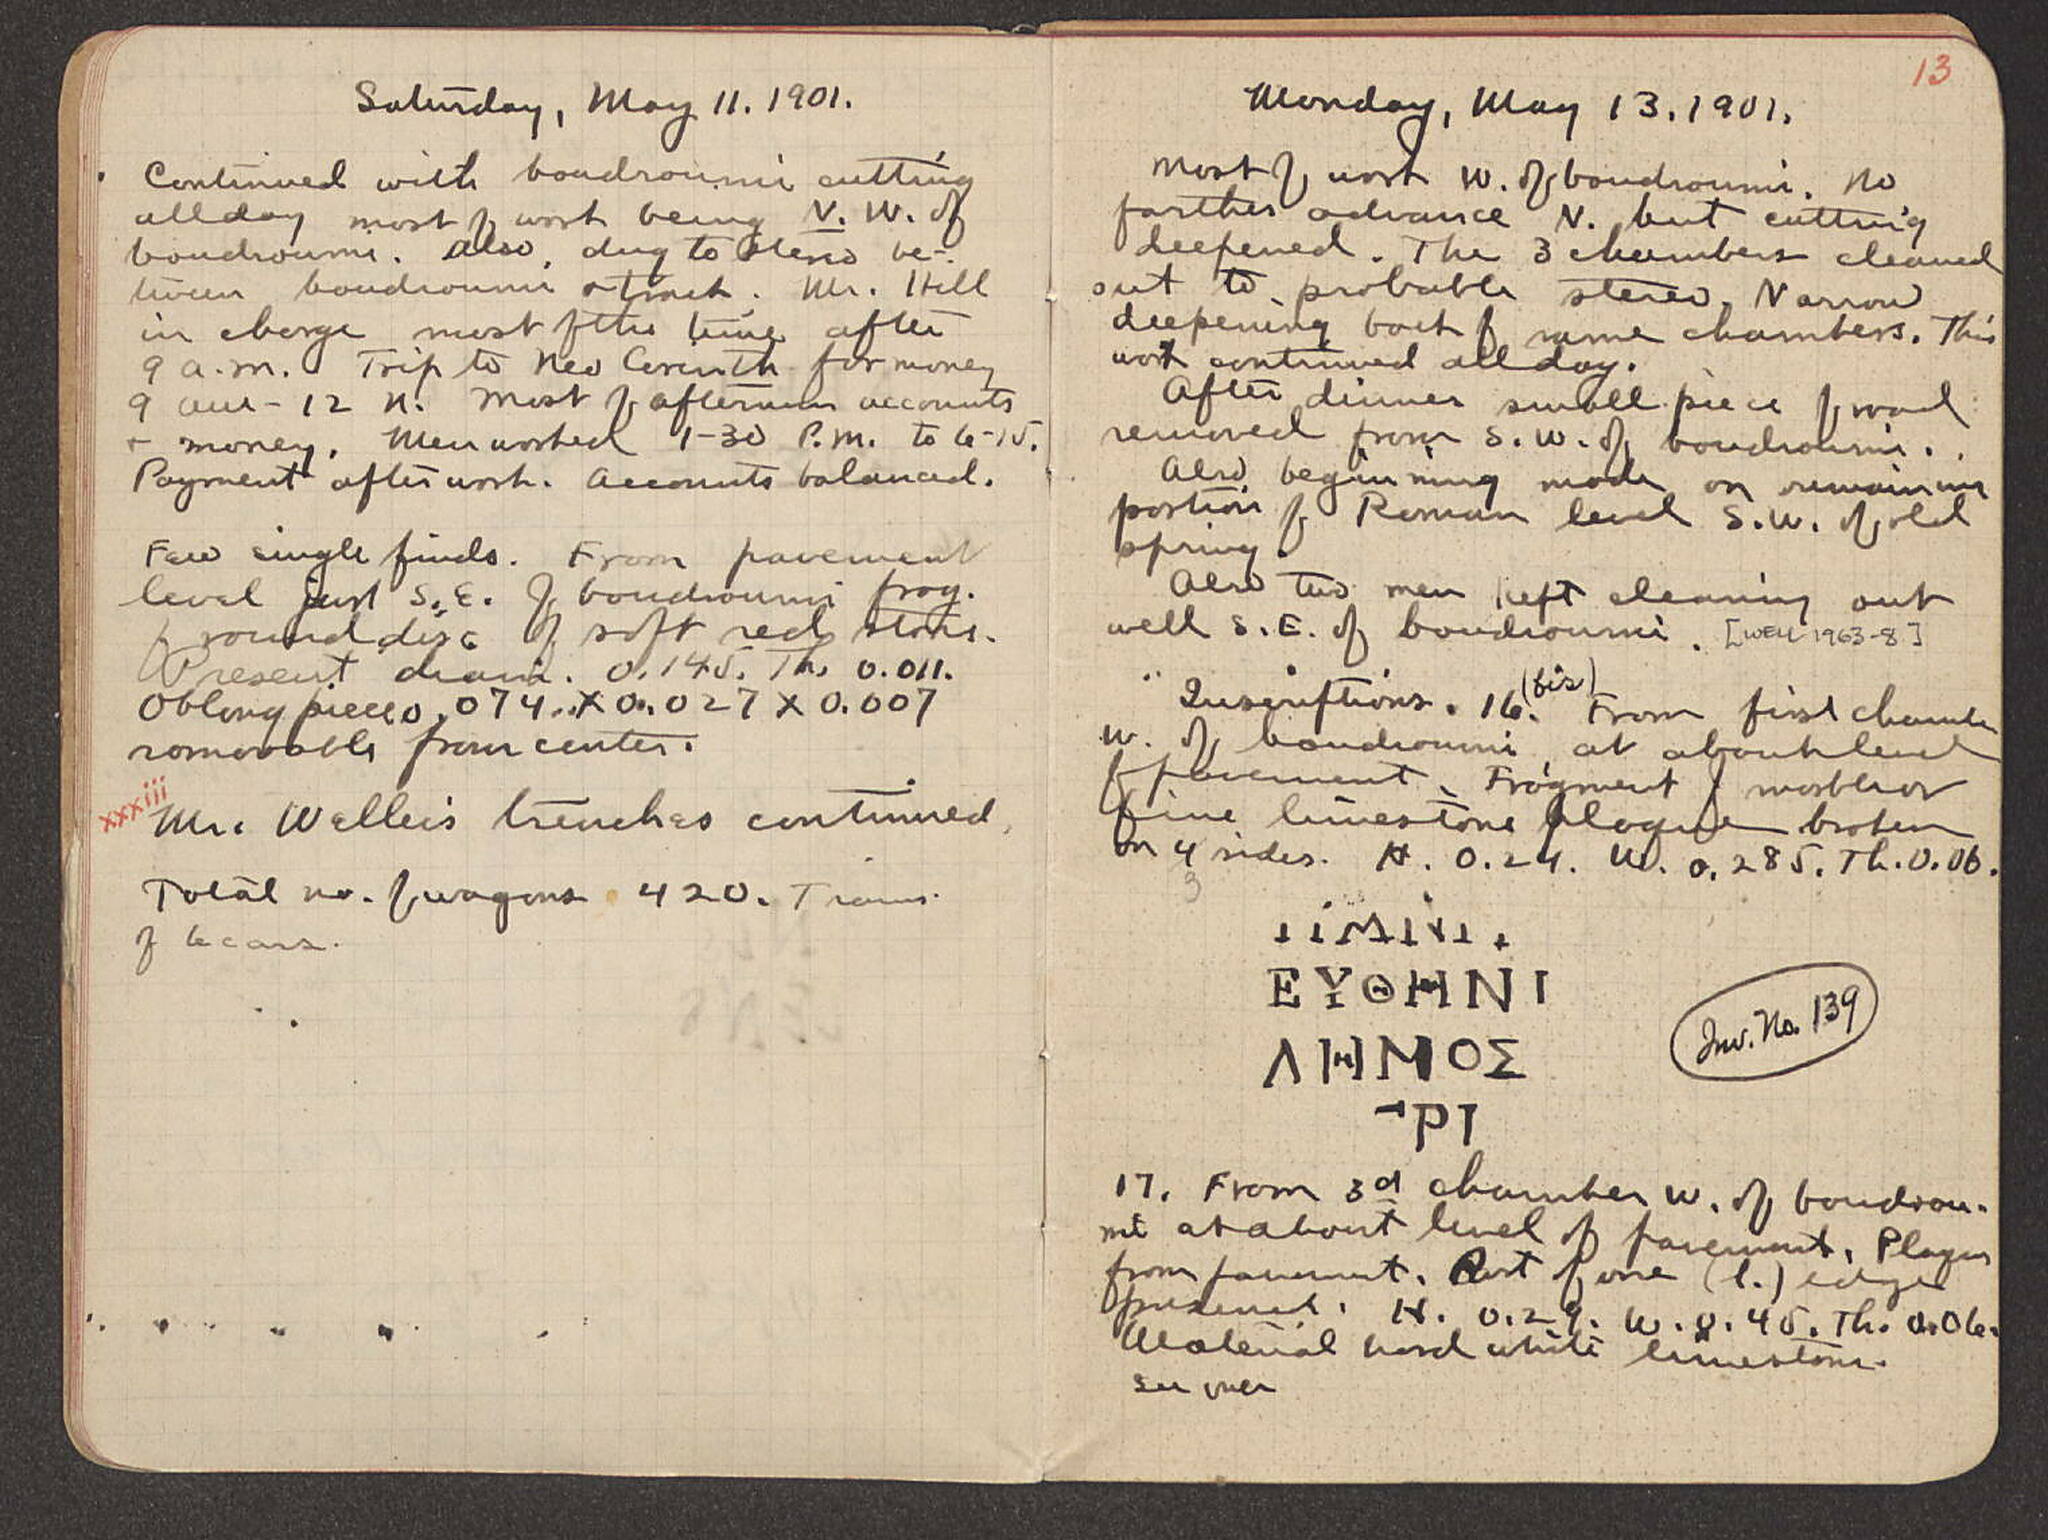 Saturday, May 11. 1901.
Continued with boudroumi cutting
all day most of work being N. W. of
boudroumi. Also, dug to stereo be-
tween boudroumi + track. Mr. Hill
in charge most of the time after
9 a.m. Trip to Neo Corinth for money
9 am - 12 N. Most of afternoon accounts
+ money. Men worked 1-30 P.M. to 6-15.
Payment after work. Accounts balanced.
Few single finds. From pavement
level just S.E. of boudroumi frag.
of round disc of soft red stone.
Present diam. 0.145. Th. 0.011.
Oblong piece 0.074 x 0.027 x 0.007
removable from center.
xxxiii
Mr. Welles's trenches continued.
Total no. of wagons 420. Trains
of 6 cars.
13
Monday, May 13. 1901.
Most of work W. of boudroumi. No
farther advance N. but cutting
deepened. The 3 chambers cleaned
out to probable stereo. Narrow
deepening back of same chambers. This
work continued all day.
After dinner small piece of road
removed from S.W. of boudroumi.
Also beginning made on remaining
portion of Roman level S.W. of old
spring.
Also two men kept cleaning out
well S.E. of boudroumi. [WELL 1963-8]
Inscriptions. 16. (bis) From first chamber
W. of boudroumi at about level
of pavement. Fragment of marble or
fine limestone plaque broken
on 4 sides. H. 0.24. W. 0.285. Th. 0.06.
3
ΕΥΘΗΝΙ
ΛΗΜΟΣ
ΡΙ
Inv. No. 139
17. From 3d chamber W. of boudrou-
mi at about level of pavement. Plaque
from pavement. Part of one (l.) edge
preserved. H. 0.29. W. 0.45. Th. 0.06.
Material hard white limestone.
see over